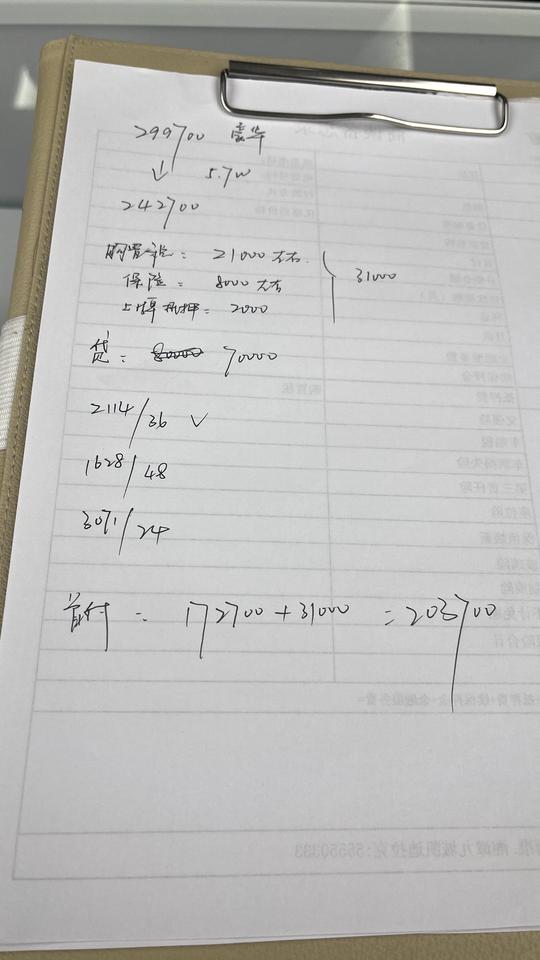 299700 豪华
↓ 5.7W
242700
购置税: 21000左右
保险: 8000左右
上牌抵押: 2000
31000
贷: 80000 70000
2114/36 √
1628/48
3071/24
首付 = 172700+31000 = 203700